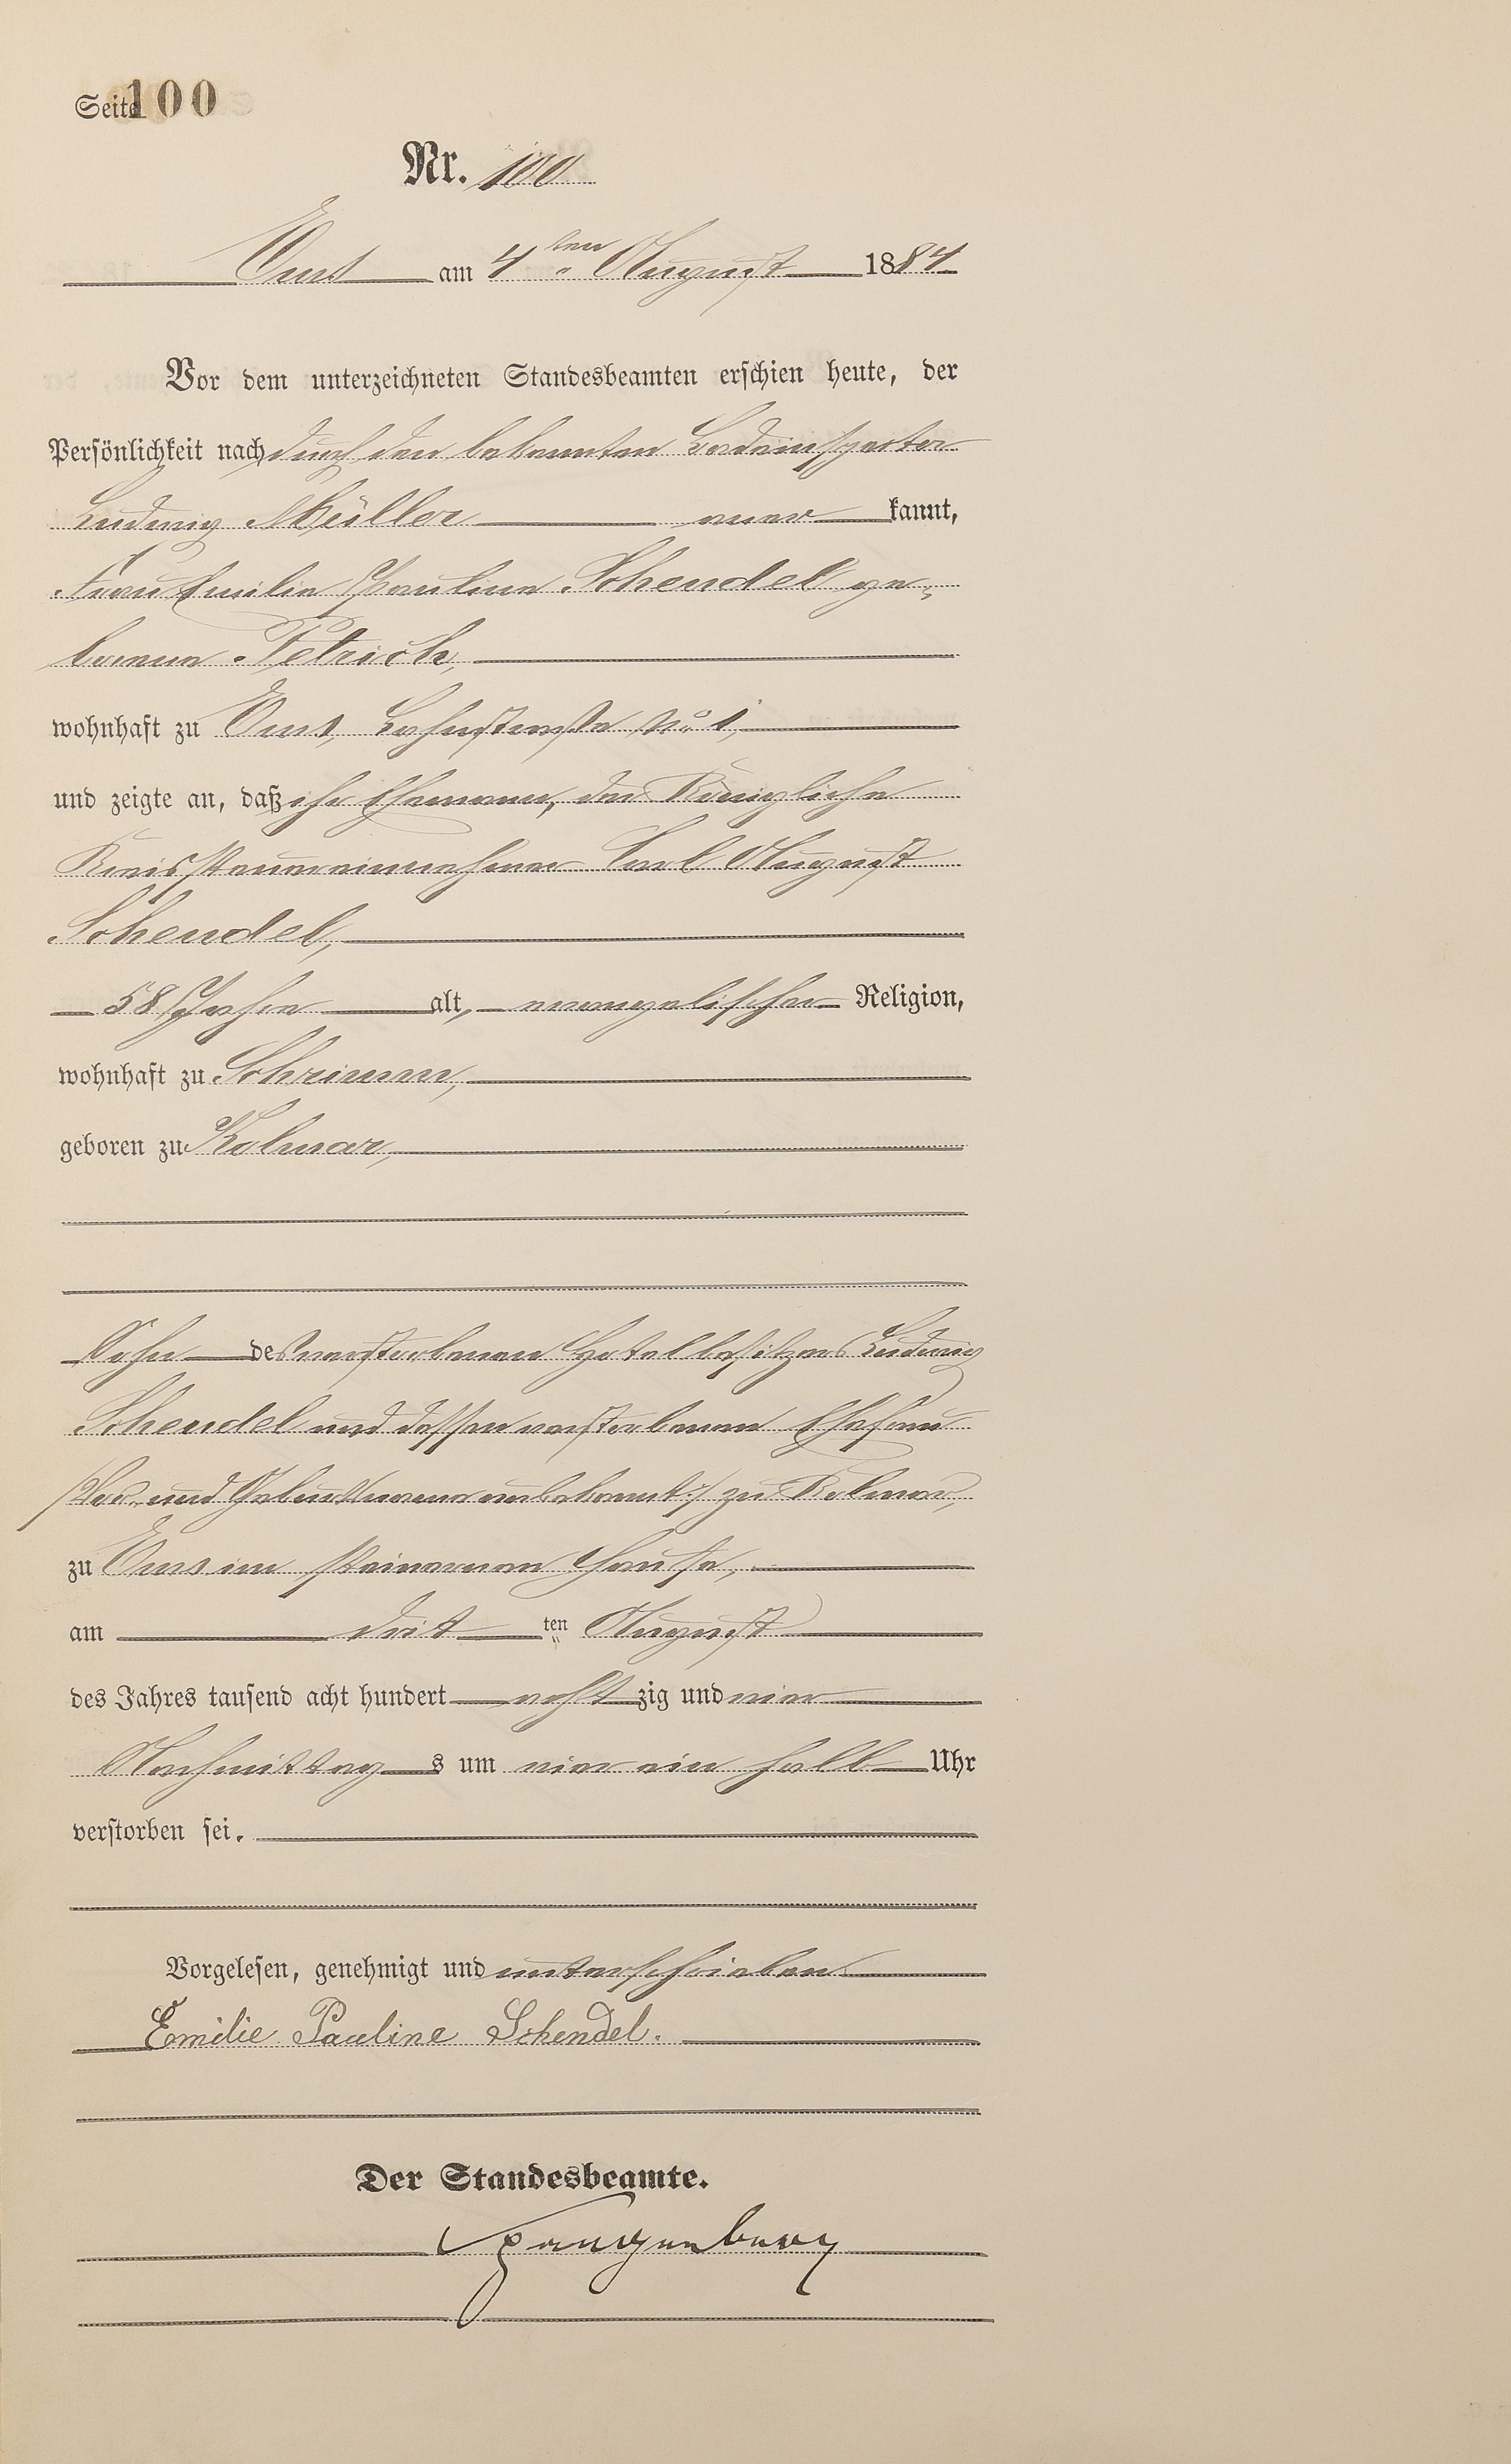 Seite 100
Nr. 100
Ems am 4ten August 1884
Vor dem unterzeichneten Standesbeamten erschien heute, der
Persönlichkeit nach durch den bekannten Badeinspector
Ludwig Müller aner kannt,
Frau Emilie Pauline Schendel ge-
borene Petrich,
wohnhaft zu Ems, Lahnstraße No 1,
und zeigte an, daß ihr Ehemann, der Königliche
Kreissteuereinnehmer Carl August
Schendel,
58 Jahre alt, evangelischer Religion,
wohnhaft zu Schrimm,
geboren zu Kolmar,
Sohn des verstorbenen Hotelbesitzers Ludwig
Schendel und dessen verstorbenen Ehefrau
/:Vor- und Geburtsname unbekannt:/ zu Kolmar,
zu Ems im steinernen Hause,
am drit ten August
des Jahres tausend acht hundert acht zig und vier
Nachmittag s um vier ein halb Uhr
verstorben sei.
Vorgelesen, genehmigt und unterschrieben
Emilie Pauline Schendel.
Der Standesbeamte.
Spangenberg